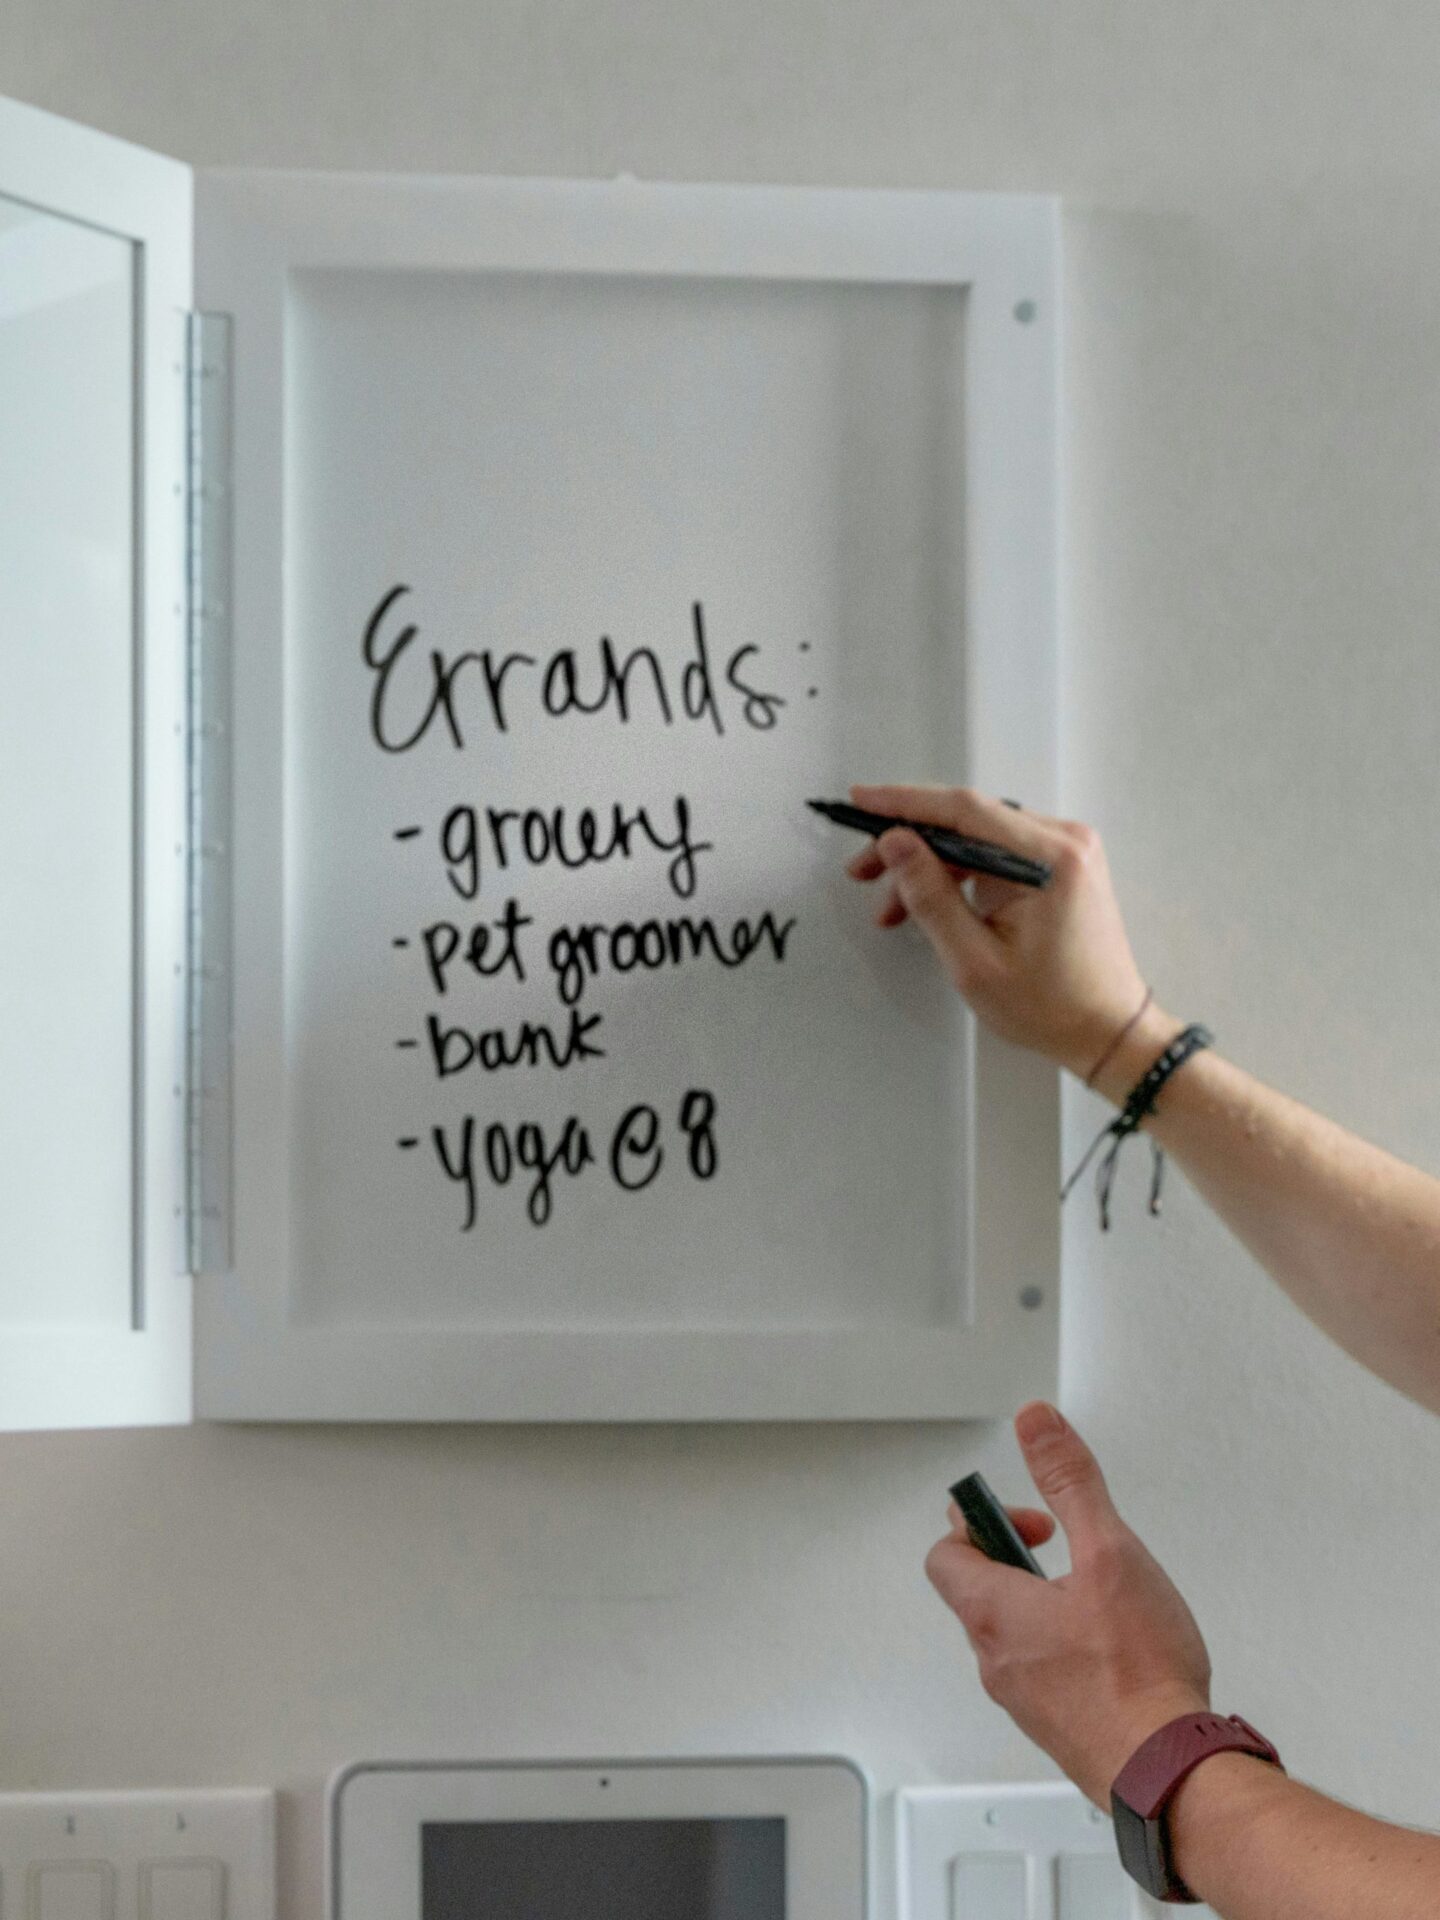 Errands:
- grocery
- pet groomer
- bank
- yoga @ 8